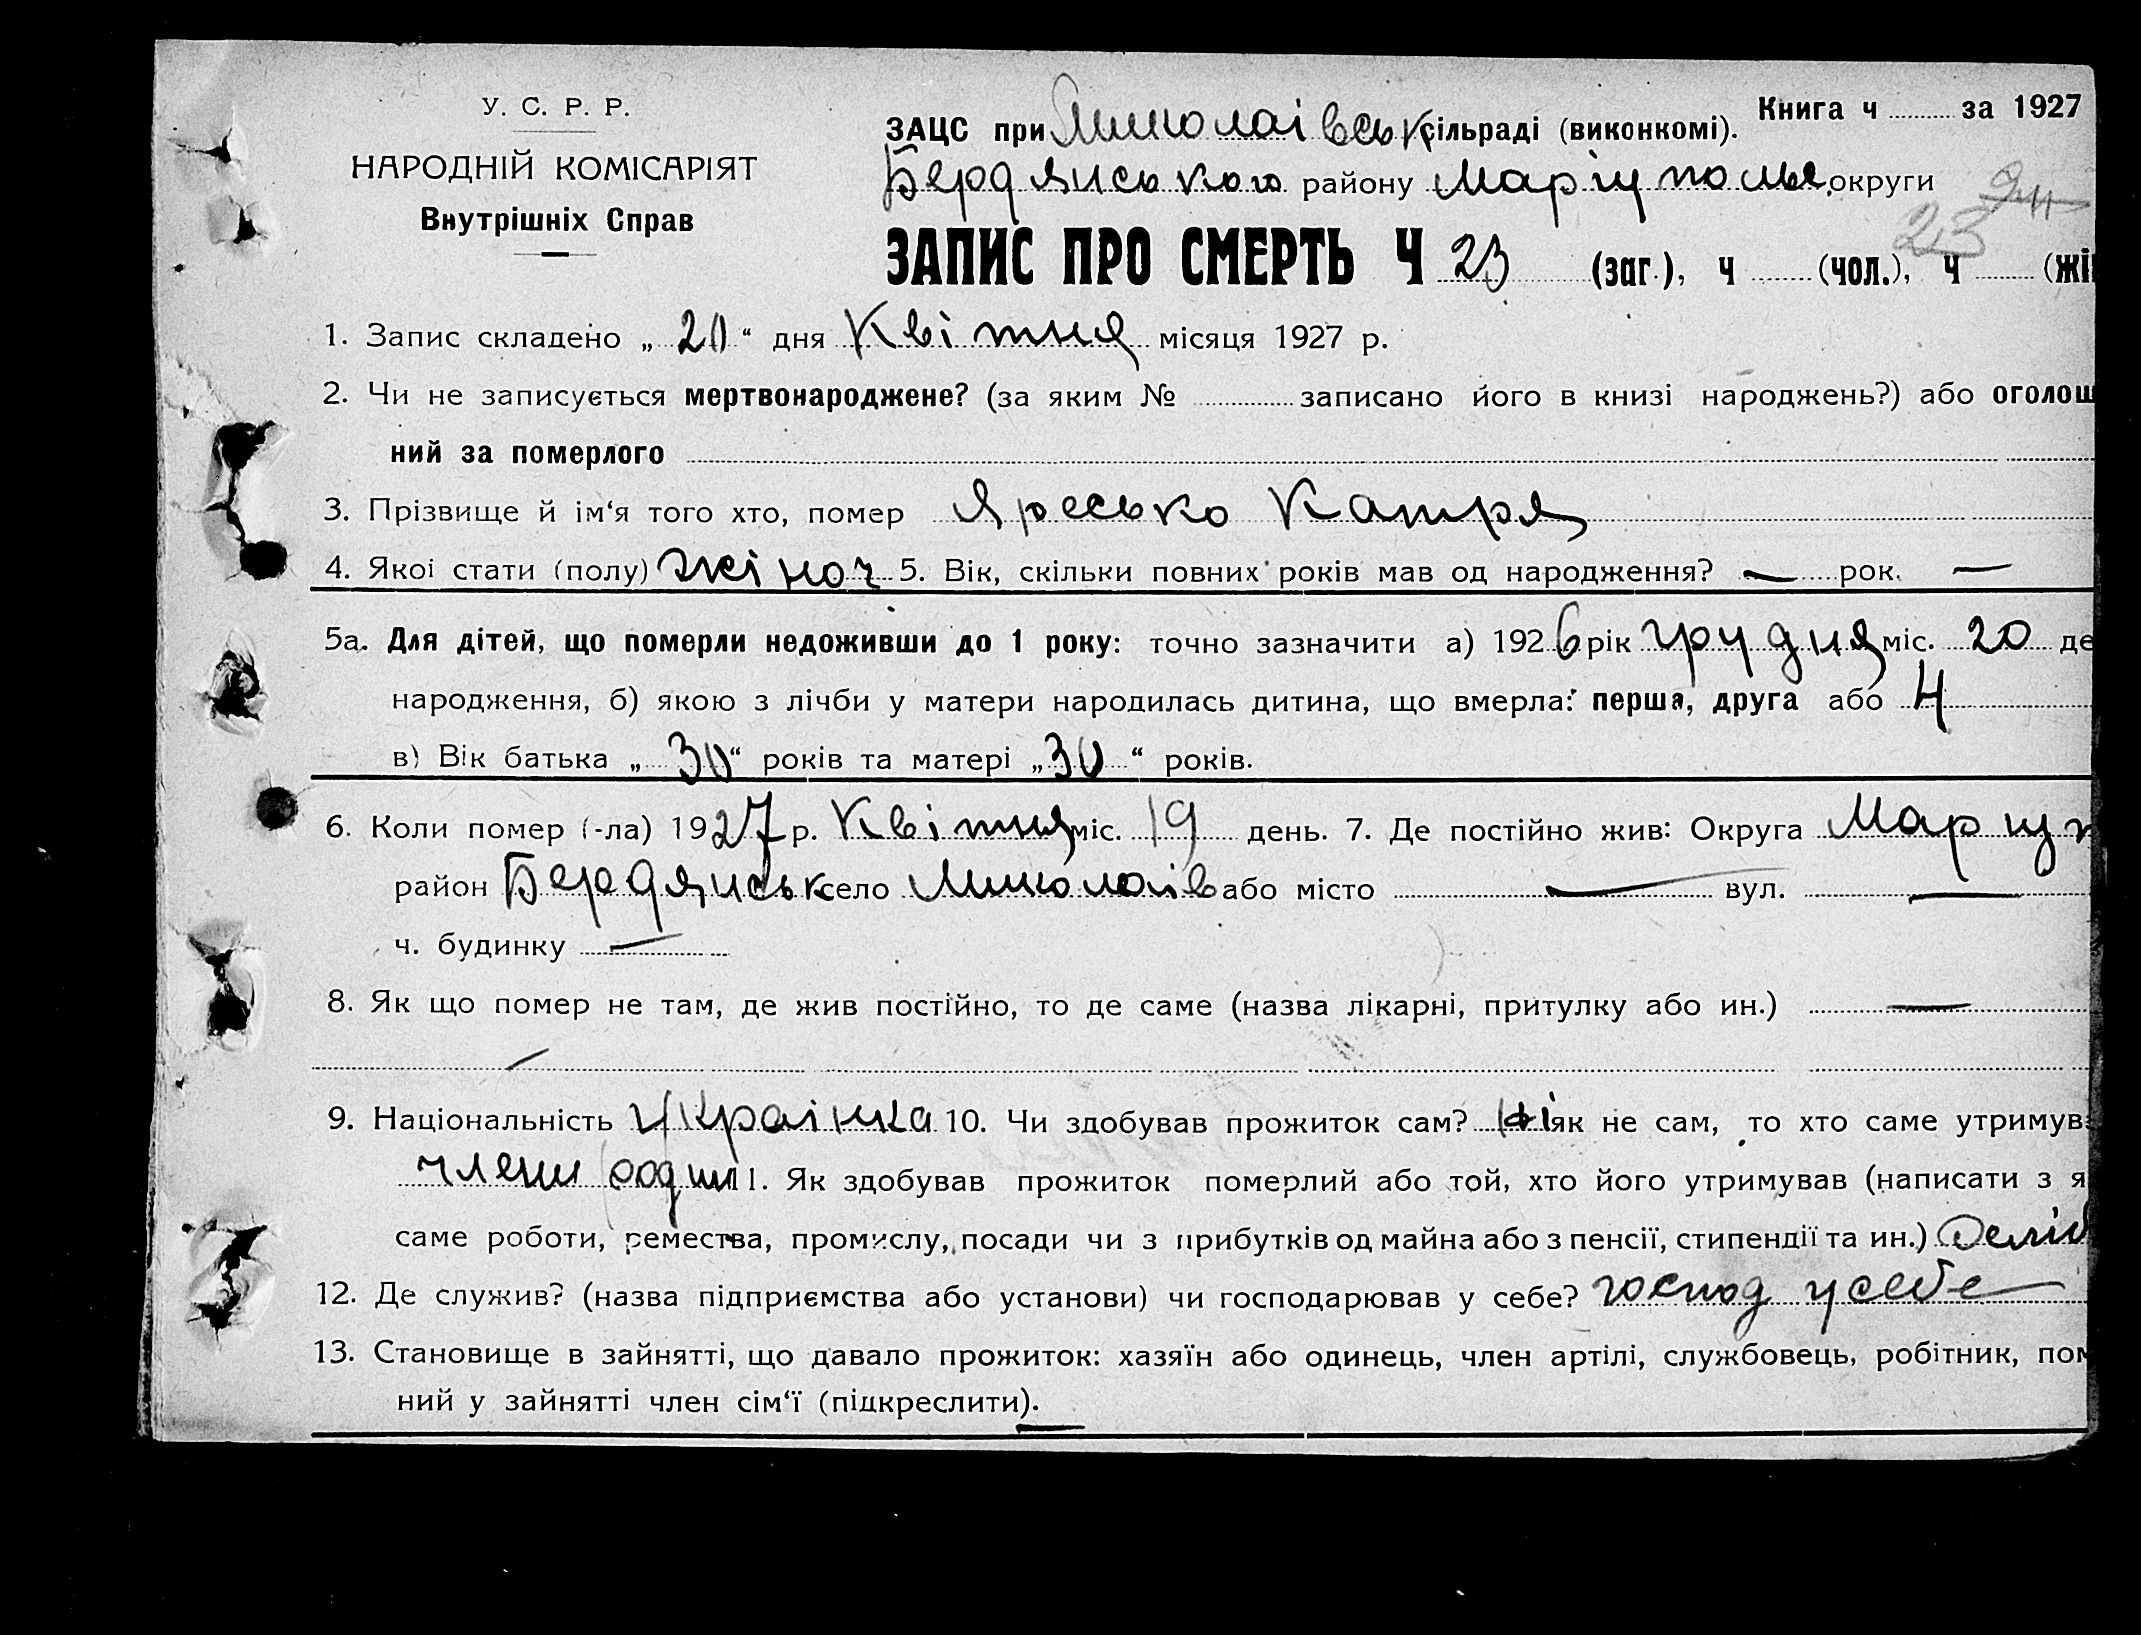 У. С. Р. Р.
НАРОДНІЙ КОМІСАРІЯТ
Внутрішніх Справ
Книга ч за 1927
ЗАЦС при Миколаівськ сільраді (виконкомі).
Бердянського району Маріупольс округи
23
ЗАПИС ПРО СМЕРТЬ Ч 23 (заг.), ч (чол.), ч (жі
1. Запис складено „ 20 “ дня Квітня місяця 1927 р.
2. Чи не записується мертвонароджене? (за яким № записано його в книзі народжень?) або оголош
ний за померлого
3. Прізвище й ім‘я того хто, помер Яресько Катря
4. Якоі стати (полу) жіноч 5. Вік, скільки повних років мав од народження? — рок. —
5а. Для дітей, що померли недоживши до 1 року: точно зазначити а) 1926 рік грудня міс. 20 де
народження, б) якою з лічби у матери народилась дитина, що вмерла: перша, друга або 4
в) Вік батька „ 30 “ років та матері „ 30 “ років.
6. Коли помер (-ла) 1927 р. Квітня міс. 19 день. 7. Де постійно жив: Округа Маріуп
район Бердянськ село Миколаів або місто — вул. —
ч. будинку —
8. Як що помер не там, де жив постійно, то де саме (назва лікарні, притулку або ин.) —
9. Національність Украінка 10. Чи здобував прожиток сам? ні як не сам, то хто саме утримув
члени родини 11. Як здобував прожиток померлий або той, хто його утримував (написати з я
саме роботи, ремества, промислу, посади чи з прибутків од майна або з пенсії, стипендії та ин.)
12. Де служив? (назва підприємства або установи) чи господарював у себе? господ у себе
13. Становище в зайнятті, що давало прожиток: хазяїн або одинець, член артілі, службовець, робітник, пом
ний у зайнятті член сім‘ї (підкреслити).